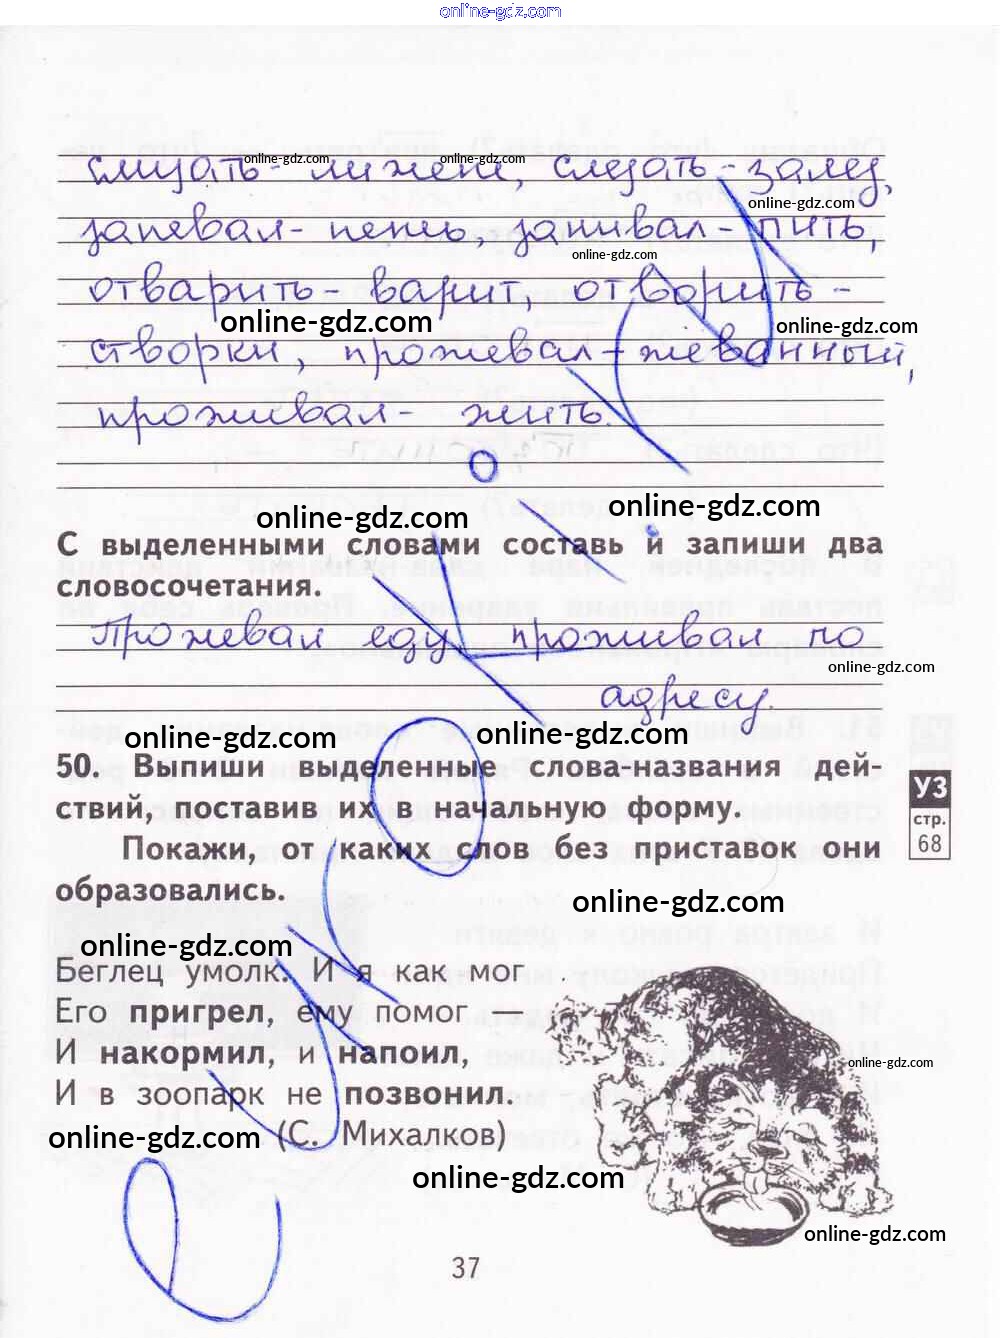 online-gdz.com
слизать - лижет, слезать - залез,
online-gdz.com online-gdz.com
online-gdz.com
запевал - певец, запивал - пить,
online-gdz.com
отварить - варит, отворить -
online-gdz.com online-gdz.com
створки, прожевал - жеванный,
проживал - жить.
online-gdz.com online-gdz.com
С выделенными словами составь и запиши два
словосочетания.
Прожевал еду, проживал по
online-gdz.com
адресу.
online-gdz.com online-gdz.com
50. Выпиши выделенные слова-названия дей-
ствий, поставив их в начальную форму.
УЗ
стр.
68
Покажи, от каких слов без приставок они
образовались.
online-gdz.com
online-gdz.com
Беглец умолк. И я как мог
Его пригрел, ему помог
И накормил, и напоил,
online-gdz.com
И в зоопарк не позвонил.
online-gdz.com (С. Михалков)
online-gdz.com
online-gdz.com
37